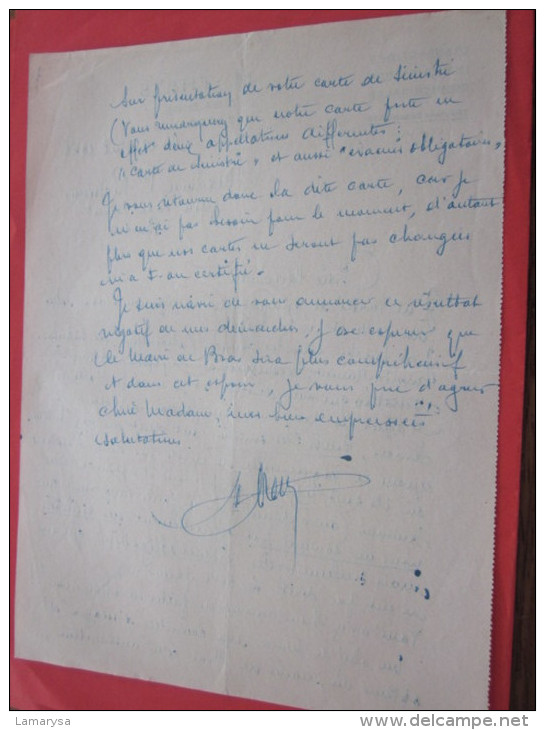 Sur présentation de votre carte de Sinistré
(Vous remarquerez que notre carte porte en
effet deux appelations differentes :
"carte de sinistré" et aussi "évacués obligatoires"
Je vous retourne donc la dite carte, car je
n'en ai pas besoin pour le moment, d'autant
plus que nos cartes ne seront pas changées
m'a t-on certifié.
Je suis navré de vous annoncer ce résultat
négatif de mes démarches, j'ose espérer que
le Maire de Bras sera plus compréhensif
et dans cet espoir, je vous prie d'agréer
chère Madame, mes bien empressées
salutations
Lamarysa
www.delcampe.net